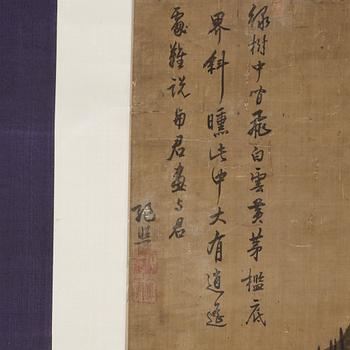 綠樹中間飛白雲黃茅檻底
界斜曛此中大有逍遙
處難說与君畫与君